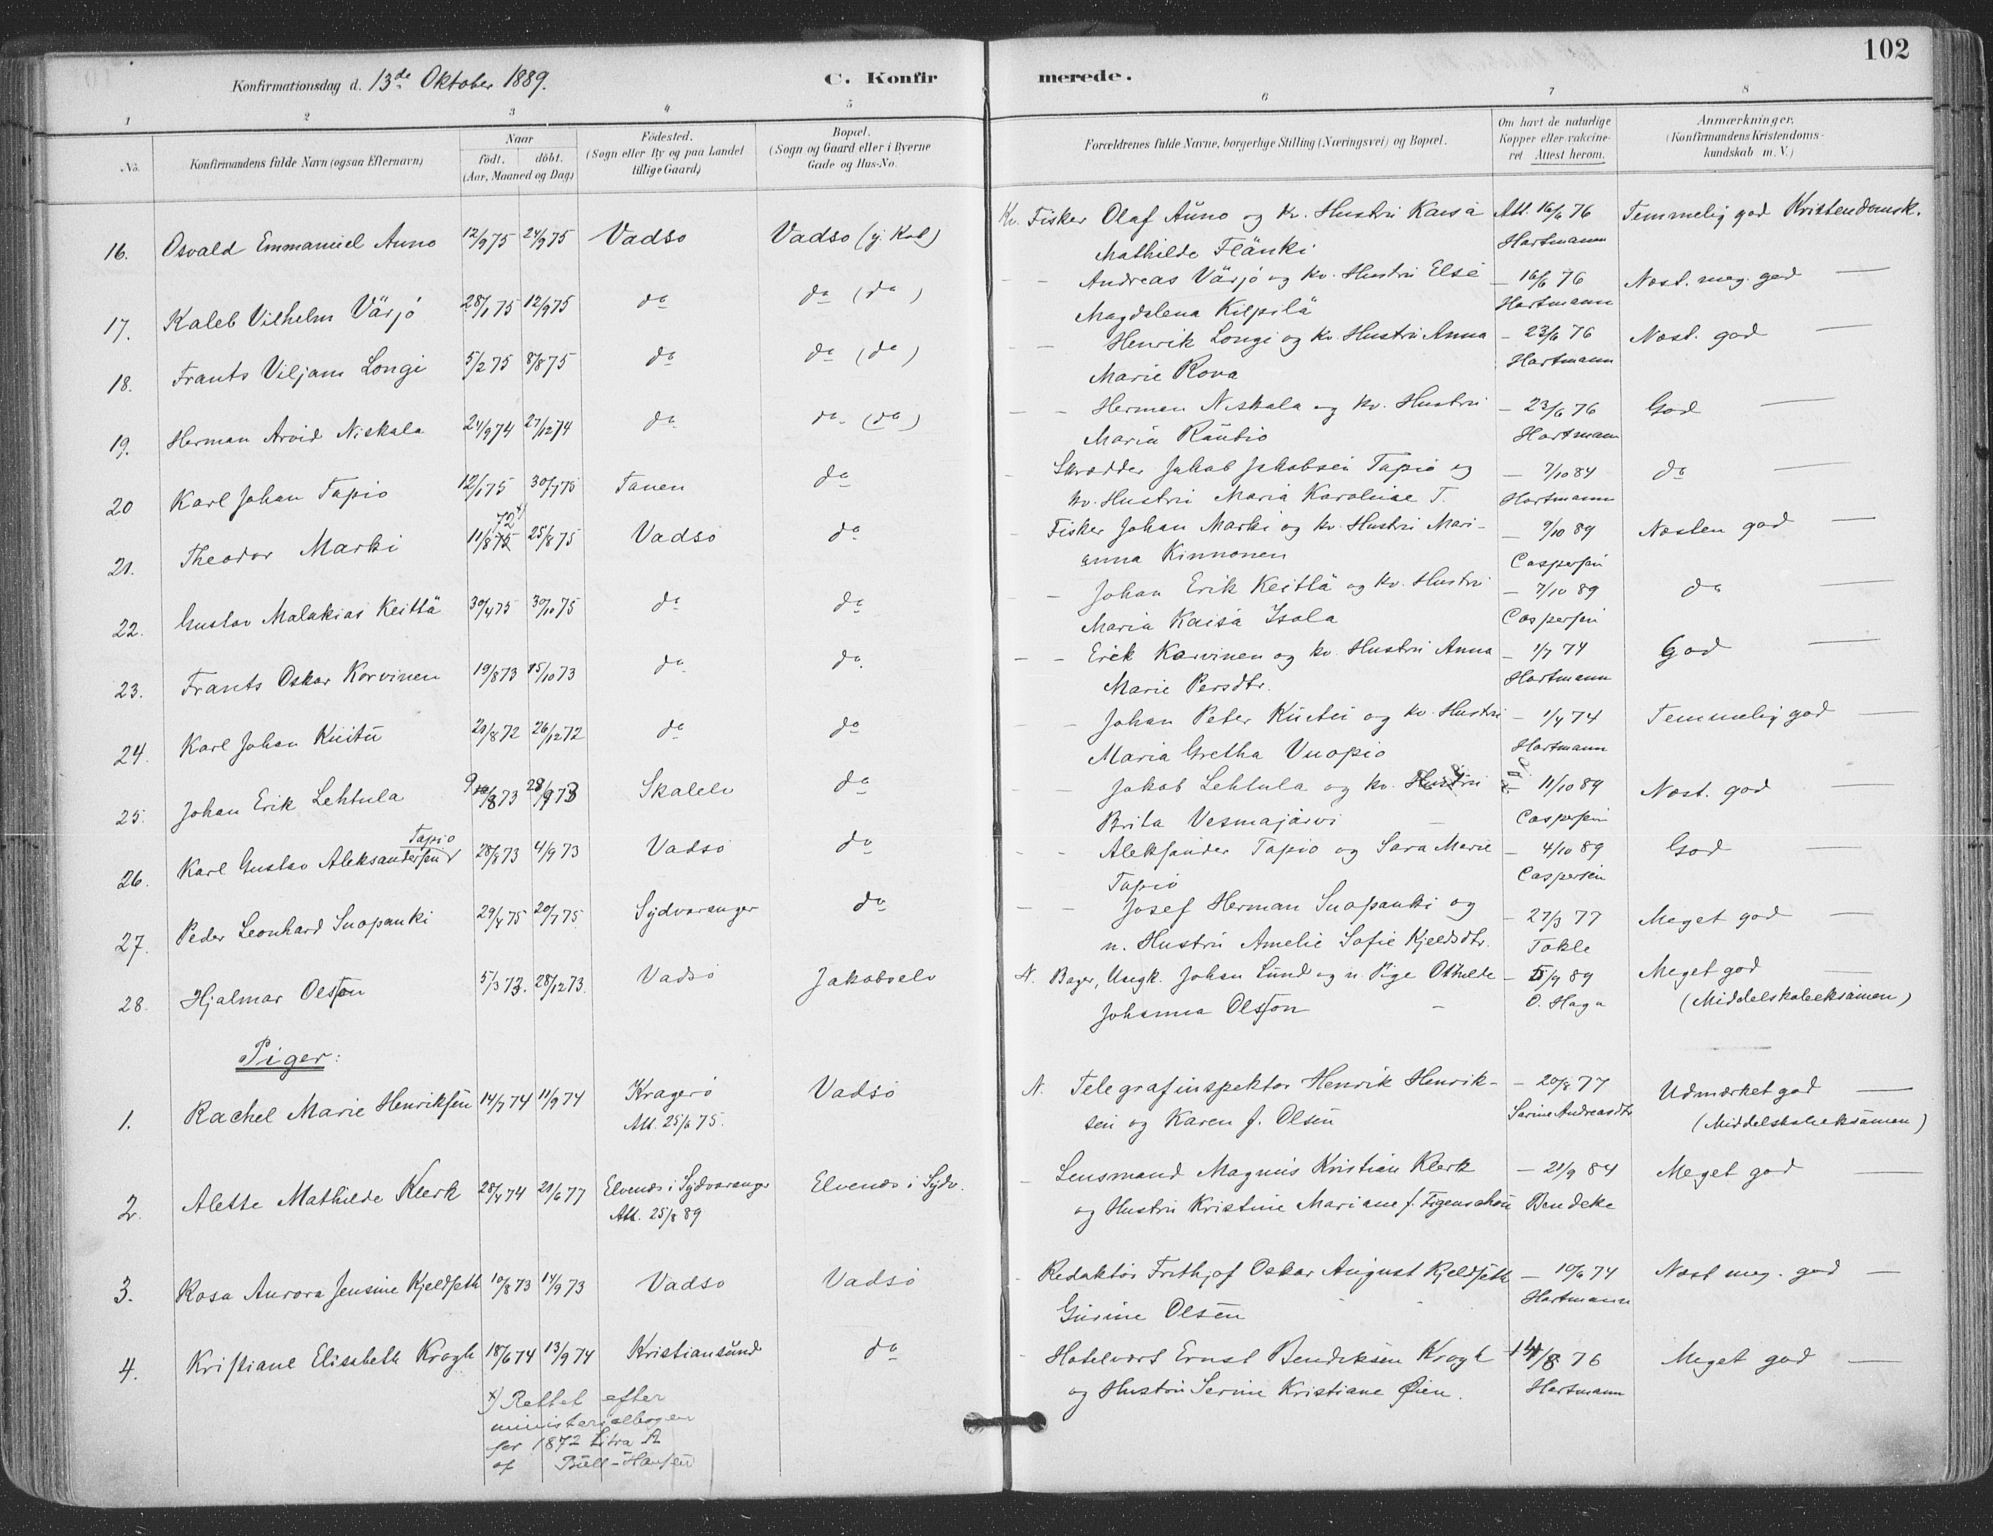 102
Konfirmationsdag d. 13de Oktober 1889.
C. Konfir
merede.
1 2 3 4 5 6 7 8
No.
Konfirmandens fulde Navn (ogsaa Efternavn)
Naar
født. døbt.
(Aar, Maaned og Dag)
Fødested.
(Sogn eller By og paa Landet
tillige Gaard)
Bopæl.
(Sogn og Gaard eller i Byerne
Gade og Hus-No.
Forældrenes fulde Navne, borgerlige Stilling (Næringsvei) og Bopæl.
Om havt de naturlige
Kopper eller vakcine-
ret Attest herom.
Anmærkninger.
(Konfirmandens Kristendoms-
kundskab m. V.)
16. Osvald Emmanuel Auno 12/9 75 24/9 75 Vadsö Vadsö (y. Kal) Kv. Fisker Olaf Auno og Kv. Hustru Kaisa Att. 16/6 76 Temmelig god Kristendomsk.
Mathilde Flänki Hartmann
17. Kaleb Vilhelm Värjö 28/1 75 12/9 75 do do (do) - - Andreas Värjö og kv. Hustru Else - 16/6 76 Næst. meg. god —
Magdalena Kilpilä Hartmann
18. Frants Viljam Longi 5/2 75 8/8 75 do do (do) - - Henrik Longi og kv. Hustru Anna - 23/6 76 Næst. god —
Marie Rova Hartmann
19. Herman Arvid Niskala 24/9 74 27/12 74 do do (do) - - Herman Niskala og kv. Hustru - 23/6 76 God —
Maria Rautio Hartmann
20 Karl Johan Tapio 12/1 75 30/7 75 Tanen do - Skrædder Jakob Jakobsen Tapio og - 7/10 84 do —
kv. Hustru Maria Karoline T. Hartmann
72 x)
21. Theodor Marki 11/8 75 25/8 75 Vadsö do - Fisker Johan Marki og kv. Hustru Mari- - 9/10 89 Næsten god —
anna Kinnonen Caspersen
22. Gustav Malakias Keittä 30/4 75 30/10 75 do do - - Johan Erik Keittä og kv. Hustru - 7/10 89 do —
Maria Kaisa Isola Caspersen
23. Frants Oskar Korvinen 19/8 73 15/10 73 do do - - Erik Karvinen og kv. Hustru Anna - 1/7 74 God —
Marie Persdtr. Hartmann
24. Karl Johan Kuitu 21/8 72 26/12 72 do do - - Johan Peter Kuitu og kv. Hustru - 1/4 74 Temmelig god —
Maria Gretha Vuopio Hartmann
25. Johan Erik Lehtula 9/8 73 28/9 73 Skalelv do - - Jakob Lehtula og kv. Hustru - 11/10 89 Næst. god —
Brita Vesmajärvi Caspersen
Tapio
26. Karl Gustav Aleksandersen 28/8 73 4/9 73 Vadsö do - - Aleksander Tapio og Sara Marie - 4/10 89 God —
Tapio Caspersen
27. Peder Leonhard Suopanki 29/4 75 20/7 75 Sydvaranger do - - Josef Herman Suopanki og - 27/3 77 Meget god —
n. Hustru Amelie Sofie Kjeldsdtr. Takle
28. Hjalmar Olsson 5/3 73. 28/12 73. Vadsö Jakobselv N. Bager, Ungk. Johan Lund og n. Pige Othilde - 5/9 89 Meget god —
Johanna Olsson O. Haga (Middelskoleeksamen)
Piger:
1. Rachel Marie Henriksen 14/7 74 11/9 74 Kragerö Vadsö N. Telegrafinspektør Henrik Henrik- - 20/8 77 Udmærket god —
Att. 25/6 75. sen og Karen f. Olsen Sarine Andreasdtr (Middelskoleeksamen)
2. Alette Mathilde Klerk 28/4 74 21/6 77 Elvenæs i Sydvaranger Elvenæs i Sydv. - Lensmand Magnus Kristian Klerk - 21/9 84 Meget god —
Att. 25/8 89 og Hustru Kristine Mariane f. Figenschou Bendeke
3. Rosa Aurora Jensine Kjeldseth 10/8 73 14/9 73 Vadsö Vadsö - Redaktör Frithjof Oskar August Kjeldseth - 10/6 74 Næst meg. god —
Gurine Olsen Hartmann
4. Kristiane Elisabeth Krogh 18/6 74 13/9 74 Kristiansund do - Hotelvært Ernst Bendiksen Krogh 14/8 76 Meget god —
og Hustru Serine Kristiane Øien. Hartmann
x) Rettet efter
ministerialbogen
for 1872 Litra A
af Bull-Hansen